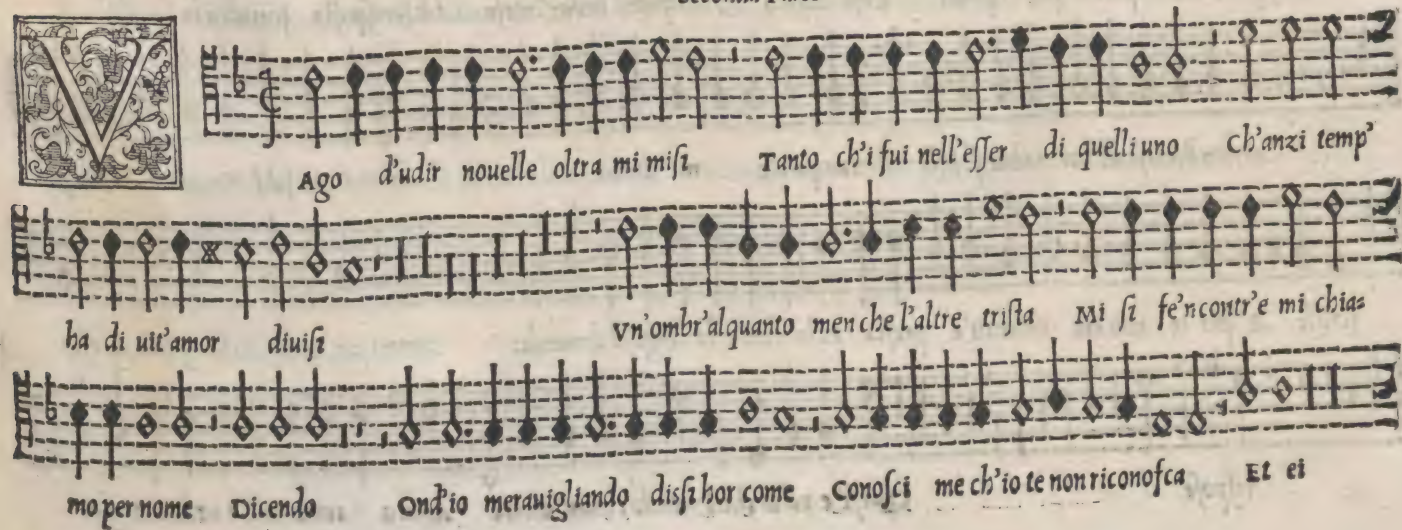 V
Ago d'udir nouelle oltra mi miſi Tanto ch'i fui nell'eſſer di quelli uno Ch'anzi temp'
ha di uit'amor diuiſi Vn'ombr'alquanto men che l'altre triſta Mi ſi fe'ncontr'e mi chia=
mo per nome Dicendo Ond'io merauigliando disſi hor come Conoſci me ch'io te non riconoſca Et ei